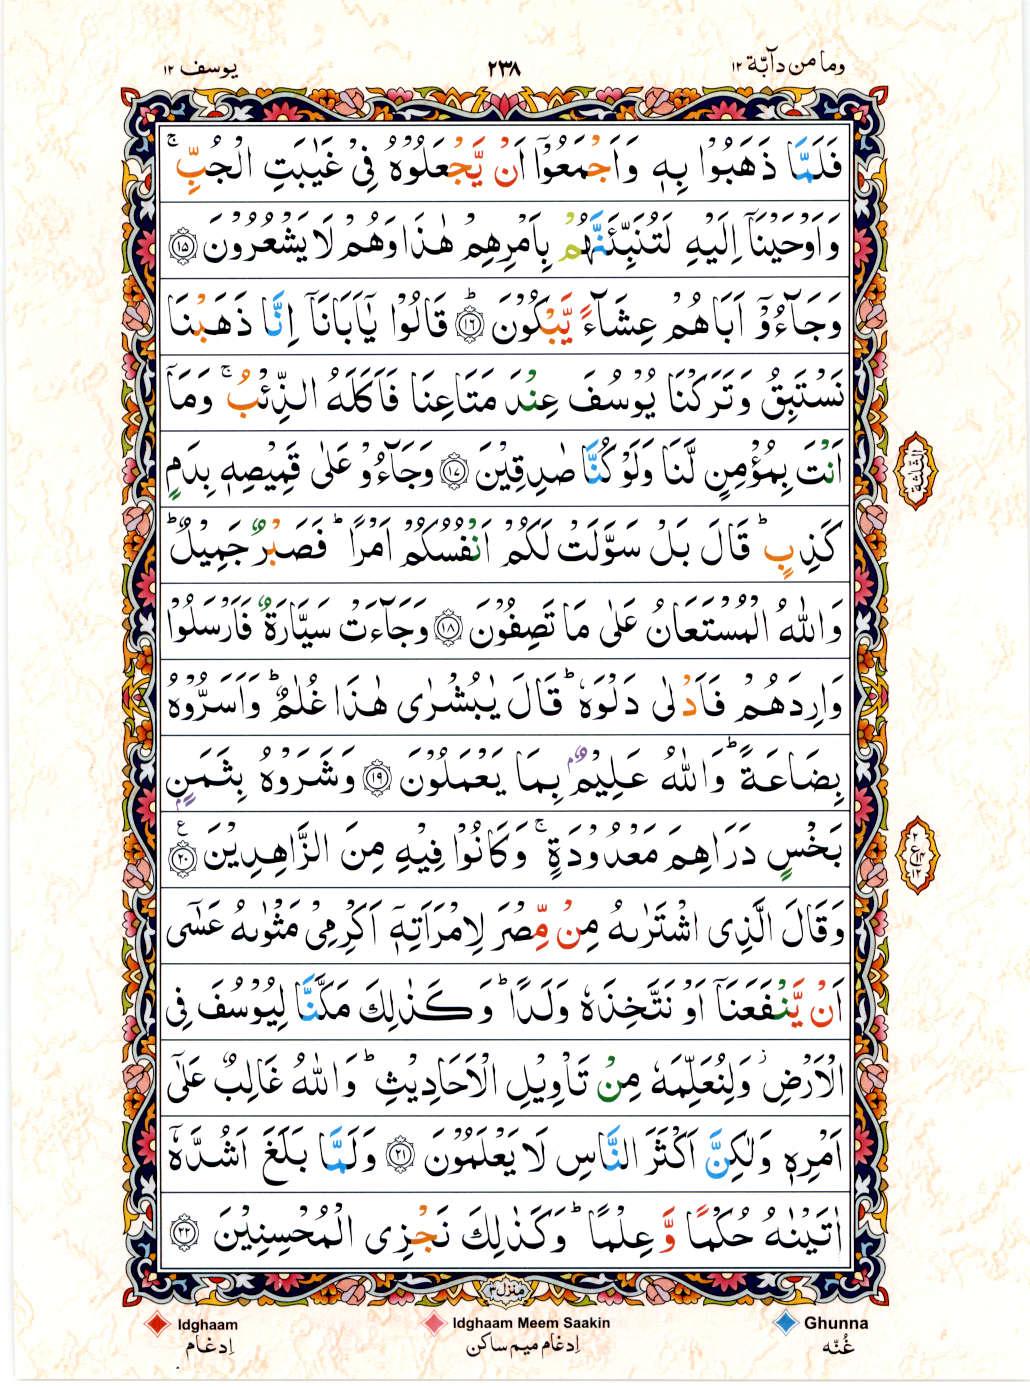 وما من دآبّة ١٢
٢٣٨
يوسف ١٢
فَلَمَّا ذَهَبُوۡا بِهٖ وَاَجۡمَعُوۡۤا اَنۡ يَّجۡعَلُوۡهُ فِىۡ غَيٰبَتِ الۡجُبِّ‌ۚ
وَاَوۡحَيۡنَاۤ اِلَيۡهِ لَتُنَبِّئَنَّهُمۡ بِاَمۡرِهِمۡ هٰذَا وَهُمۡ لَا يَشۡعُرُوۡنَ ﴿۱۵﴾
وَجَآءُوۡۤ اَبَاهُمۡ عِشَآءً يَّبۡكُوۡنَؕ ﴿۱۶﴾ قَالُوۡا يٰۤاَبَانَاۤ اِنَّا ذَهَبۡنَا
نَسۡتَبِقُ وَتَرَكۡنَا يُوۡسُفَ عِنۡدَ مَتَاعِنَا فَاَكَلَهُ الذِّئۡبُ‌ۚ وَمَاۤ
اَنۡتَ بِمُؤۡمِنٍ لَّنَا وَلَوۡ كُنَّا صٰدِقِيۡنَ ﴿۱۷﴾ وَجَآءُوۡ عَلٰى قَمِيۡصِهٖ بِدَمٍ
كَذِبٍ‌ؕ قَالَ بَلۡ سَوَّلَتۡ لَكُمۡ اَنۡفُسُكُمۡ اَمۡرًا‌ؕ فَصَبۡرٌ جَمِيۡلٌ‌ؕ
وَاللّٰهُ الۡمُسۡتَعَانُ عَلٰى مَا تَصِفُوۡنَ ﴿۱۸﴾ وَجَآءَتۡ سَيَّارَةٌ فَاَرۡسَلُوۡا
وَارِدَهُمۡ فَاَدۡلٰى دَلۡوَهٗ‌ؕ قَالَ يٰبُشۡرٰى هٰذَا غُلٰمٌ‌ؕ وَاَسَرُّوۡهُ
بِضَاعَةً‌ؕ وَاللّٰهُ عَلِيۡمٌۢ بِمَا يَعۡمَلُوۡنَ ﴿۱۹﴾ وَشَرَوۡهُ بِثَمَنٍۢ
بَخۡسٍ دَرَاهِمَ مَعۡدُوۡدَةٍ‌ۚ وَكَانُوۡا فِيۡهِ مِنَ الزَّاهِدِيۡنَ ﴿۲۰﴾ ع
وَقَالَ الَّذِى اشۡتَرٰٮهُ مِنۡ مِّصۡرَ لِامۡرَاَتِهٖۤ اَكۡرِمِىۡ مَثۡوٰٮهُ عَسٰٓى
اَنۡ يَّنۡفَعَنَاۤ اَوۡ نَتَّخِذَهٗ وَلَدًا‌ؕ وَكَذٰلِكَ مَكَّنَّا لِيُوۡسُفَ فِى
الۡاَرۡضِ وَلِنُعَلِّمَهٗ مِنۡ تَاۡوِيۡلِ الۡاَحَادِيۡثِ‌ؕ وَاللّٰهُ غَالِبٌ عَلٰٓى
اَمۡرِهٖ وَلٰكِنَّ اَكۡثَرَ النَّاسِ لَا يَعۡلَمُوۡنَ ﴿۲۱﴾ وَلَمَّا بَلَغَ اَشُدَّهٗۤ
اٰتَيۡنٰهُ حُكۡمًا وَّعِلۡمًا‌ؕ وَكَذٰلِكَ نَجۡزِى الۡمُحۡسِنِيۡنَ ﴿۲۲﴾
الثلثة
ع ٢ ١٢ ١٢
منزل ٣
Idghaam
Idghaam Meem Saakin
Ghunna
إدغام
إدغام ميم ساكن
غُنّه